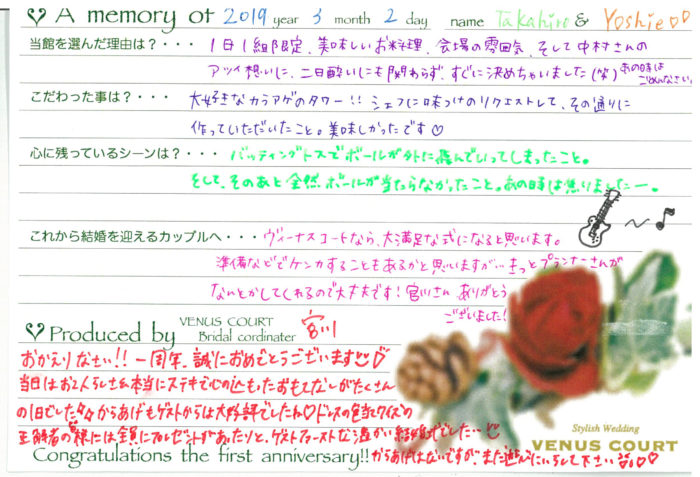 A memory of 2019 year 3 month 2 day name Takahiro & Yoshie♡♡
当館を選んだ理由は？・・・ 1日1組限定、美味しいお料理、会場の雰囲気、そして中村さんの
アツイ想いに、二日酔いにも関わらず、すぐに決めちゃいました(笑) あの時は
ごめんなさい
こだわった事は？・・・ 大好きなカラアゲのタワー!! シェフに味つけのリクエストして、その通りに
作っていただいたこと。美味しかったです♡
心に残っているシーンは？・・・ バッティングトスでボールが外に飛んでいってしまったこと。
そして、そのあと全然ボールが当たらなかったこと。あの時は焦りましたー。
これから結婚を迎えるカップルへ・・・ ヴィーナスコートなら、大満足な式になると思います。
準備などでケンカすることもあるかと思いますが…きっとプランナーさんが
なんとかしてくれるので大丈夫です！宮川さん ありがとう
ございました！
Produced by VENUS COURT Bridal cordinater 宮川
おかえりなさい!! 一周年、誠におめでとうございます♡
当日はお二人らしさ 本当にステキで心の込もったおもてなしがたくさん
の1日でした からあげもゲストからは大好評でしたね♡ドレスの色当てクイズの
正解者の皆様には全員にプレゼントがあたりと、ゲストファーストな温かい結婚式でした…
Congratulations the first anniversary!! からあげはないですが、また遊びにいらして下さい♡♡
Stylish Wedding
VENUS COURT